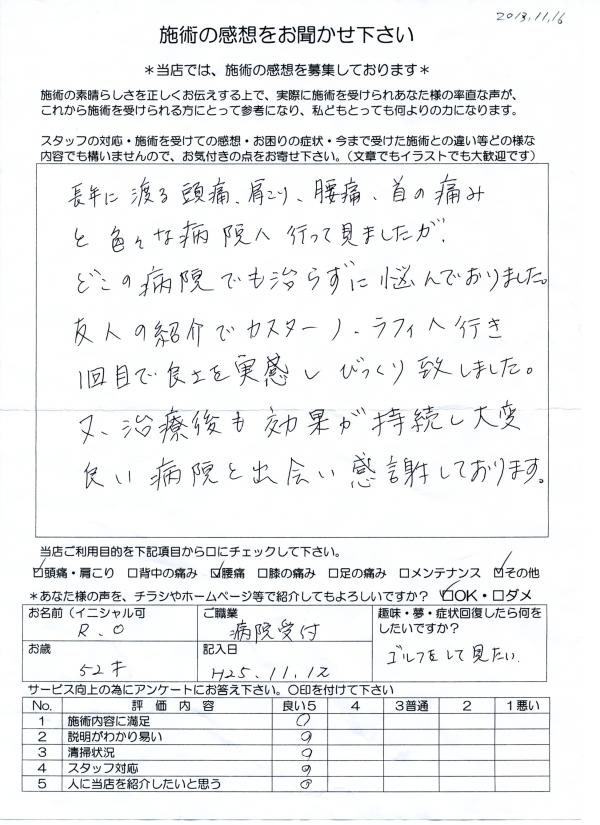 2013.11.16
施術の感想をお聞かせ下さい
＊当店では、施術の感想を募集しております＊
施術の素晴らしさを正しくお伝えする上で、実際に施術を受けられあなた様の率直な声が、
これから施術を受けられる方にとって参考になり、私どもとっても何よりの力になります。
スタッフの対応・施術を受けての感想・お困りの症状・今まで受けた施術との違い等どの様な
内容でも構いませんので、お気付きの点をお寄せ下さい。（文章でもイラストでも大歓迎です）
長年に渡る頭痛、肩こり、腰痛、首の痛み
と色々な病院へ行って見ましたが、
どこの病院でも治らずに悩んでおりました。
友人の紹介でカスターノ、ラフィへ行き
1回目で良さを実感しびっくり致しました。
又、治療後も効果が持続し大変
良い病院と出会い感謝しております。
当店ご利用目的を下記項目から口にチェックして下さい。
☑頭痛・肩こり □背中の痛み ☑腰痛 □膝の痛み □足の痛み □メンテナンス ☑その他
＊あなた様の声を、チラシやホームページ等で紹介してもよろしいですか？ ☑OK・□ダメ
お名前（イニシャル可 ご職業 趣味・夢・症状回復したら何を
R.O 病院受付 したいですか？
お歳 記入日 ゴルフをして見たい
52才 H25.11.12
サービス向上の為にアンケートにお答え下さい。〇印を付けて下さい
No. 評価内容 良い5 4 3普通 2 1悪い
1 施術内容に満足 〇
2 説明がわかり易い 〇
3 清掃状況 〇
4 スタッフ対応 〇
5 人に当店を紹介したいと思う 〇